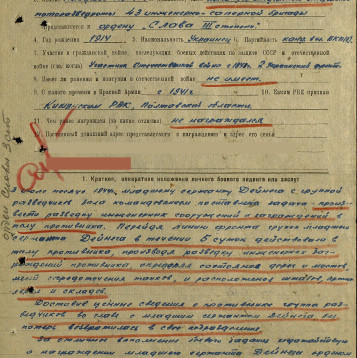 роторазведроты 43 инженерно саперной бригады
Представляется к ордену СЛАВА III степени
4. Год рождения 1914 5. Национальность Украинец 6. Партийность канд. вкп(б)
7. Участие в гражданской войне, последующих боевых действиях по защите СССР и отечественной
войне (где, когда) Участник Отечественной войны с 1942. 2 Украинский фронт.
8. Имеет ли ранения и контузии в отечественной войне не имеет.
9. С какого времени в Красной Армии с 1941 10. Каким РВК призван
РВК, Полтавской области.
11. Чем ранее награжден (за какие отличия) не награждался
12. Постоянный домашний адрес представляемого к награждению и адрес его семьи
орден Славы 3 степ
I. Краткое, конкретное изложение личного боевого подвига или заслуг
В июле месяце 1944, младшему сержанту Дейнега с группой
разведчиков была командованием поставлена задача – произ-
вести разведку инженерных сооружений и заграждений в
тылу противника. Перейдя линию фронта группа младшего
сержанта Дейнега в течении 5 суток действовала в
тылу противника, производя разведку инженерных заг-
раждений противника, определяя состояния дорог и мостов,
мест сосредоточения танков, и расположения штабов,
и складов.
Доставив ценные сведения о противнике группа раз-
ведчиков во главе с младшим сержантом Дейнега, без
потерь возвратилась в свое подразделение.
За отличное выполнение боевой задачи ходатайствую
о награждении младшего сержанта Дейнега орденом